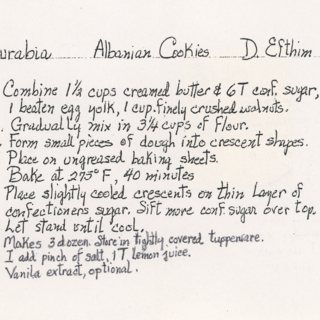 urabia Albanian Cookies D. Efthim
Combine 1½ cups creamed butter & 6T conf. sugar,
1 beaten egg yolk, 1 cup finely crushed walnuts.
. Gradually mix in 3¼ cups of flour.
. Form small pieces of dough into crescent shapes.
Place on ungreased baking sheets.
Bake at 275°F, 40 minutes
Place slightly cooled crescents on thin layer of
confectioners sugar. Sift more conf. sugar over top.
Let stand until cool.
Makes 3 dozen. Store in tightly covered tupperware.
I add pinch of salt, 1T lemon juice.
Vanila extract, optional.